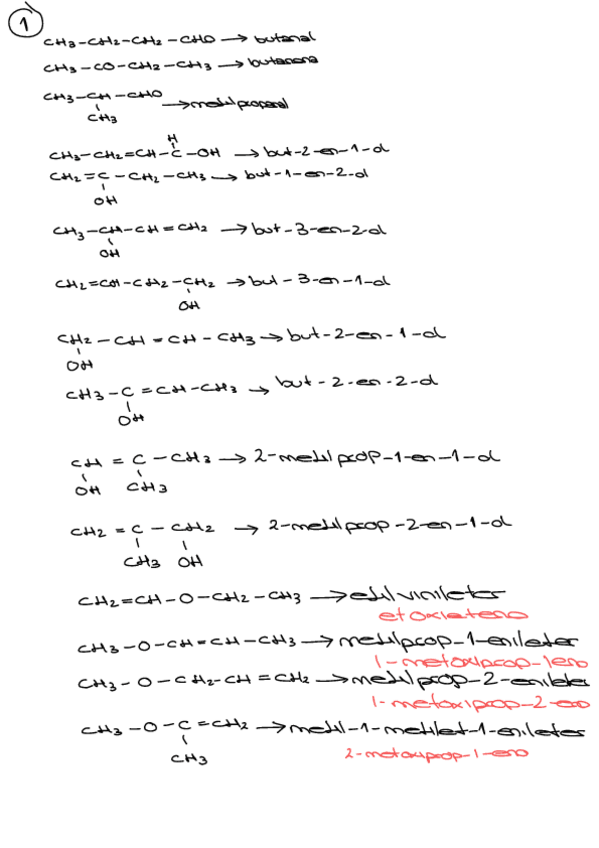 1
CH3-CH2-CH2-CHO → butanal
CH3-CO-CH2-CH3 → butanona
CH3-CH-CHO → metilpropanal
CH3
H
CH3-CH2=CH-C-OH → but-2-en-1-ol
CH2=C-CH2-CH3 → but-1-en-2-ol
OH
CH3-CH-CH=CH2 → but-3-en-2-ol
OH
CH2=CH-CH2-CH2 → but-3-en-1-ol
OH
CH2-CH=CH-CH3 → but-2-en-1-ol
OH
CH3-C=CH-CH3 → but-2-en-2-ol
OH
CH=C-CH3 → 2-metilprop-1-en-1-ol
OH CH3
CH2=C-CH2 → 2-metilprop-2-en-1-ol
CH3 OH
CH2=CH-O-CH2-CH3 → etilvinileter
etoxieteno
CH3-O-CH=CH-CH3 → metilprop-1-enileter
1-metoxiprop-1eno
CH3-O-CH2-CH=CH2 → metilprop-2-enileter
1-metoxiprop-2-eno
CH3-O-C=CH2 → metil-1-metilet-1-enileter
CH3
2-metoxiprop-1-eno